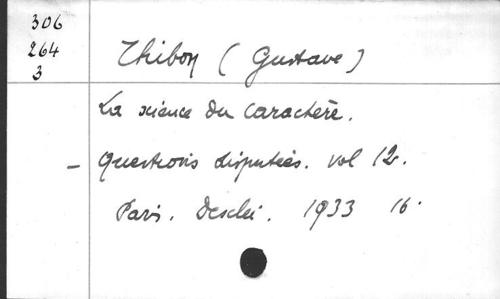 306
264
3
Thibon (Gustave)
La science du caractère.
- Questions disputées. vol 12.
Paris. Desclée. 1933 16.